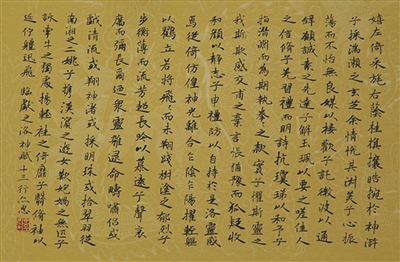 嬉左倚采旄右蔭桂旗攘皓捥於神滸
兮採湍瀨之玄芝余情悅其淑美兮心振
蕩而不怡無良媒以接歡兮託微波以通
辭願誠素之先達兮解玉珮以要之嗟佳人
之信脩兮羌習禮而明詩抗瓊珶以和予兮
指潛淵而為期執拳拳之款實兮懼斯靈之
我欺感交甫之棄言悵猶豫而狐疑收
和顏以靜志兮申禮防以自持於是洛靈感
焉徙倚仿偟神光離合乍陰乍陽擢輕軀
以鶴立若將飛而未翔踐椒塗之郁烈兮
步蘅薄而流芳超長吟以慕遠兮聲哀
厲而彌長爾迺眾靈雜遝命疇嘯侶或
戲清流或翔神渚或採明珠或拾翠羽從
南湘之二姚兮攜漢濱之遊女歎匏媧之無匹兮
詠牽牛之獨處揚輕袿之倚靡兮翳脩袖以
延佇體迅飛 臨獻之洛神賦十三行